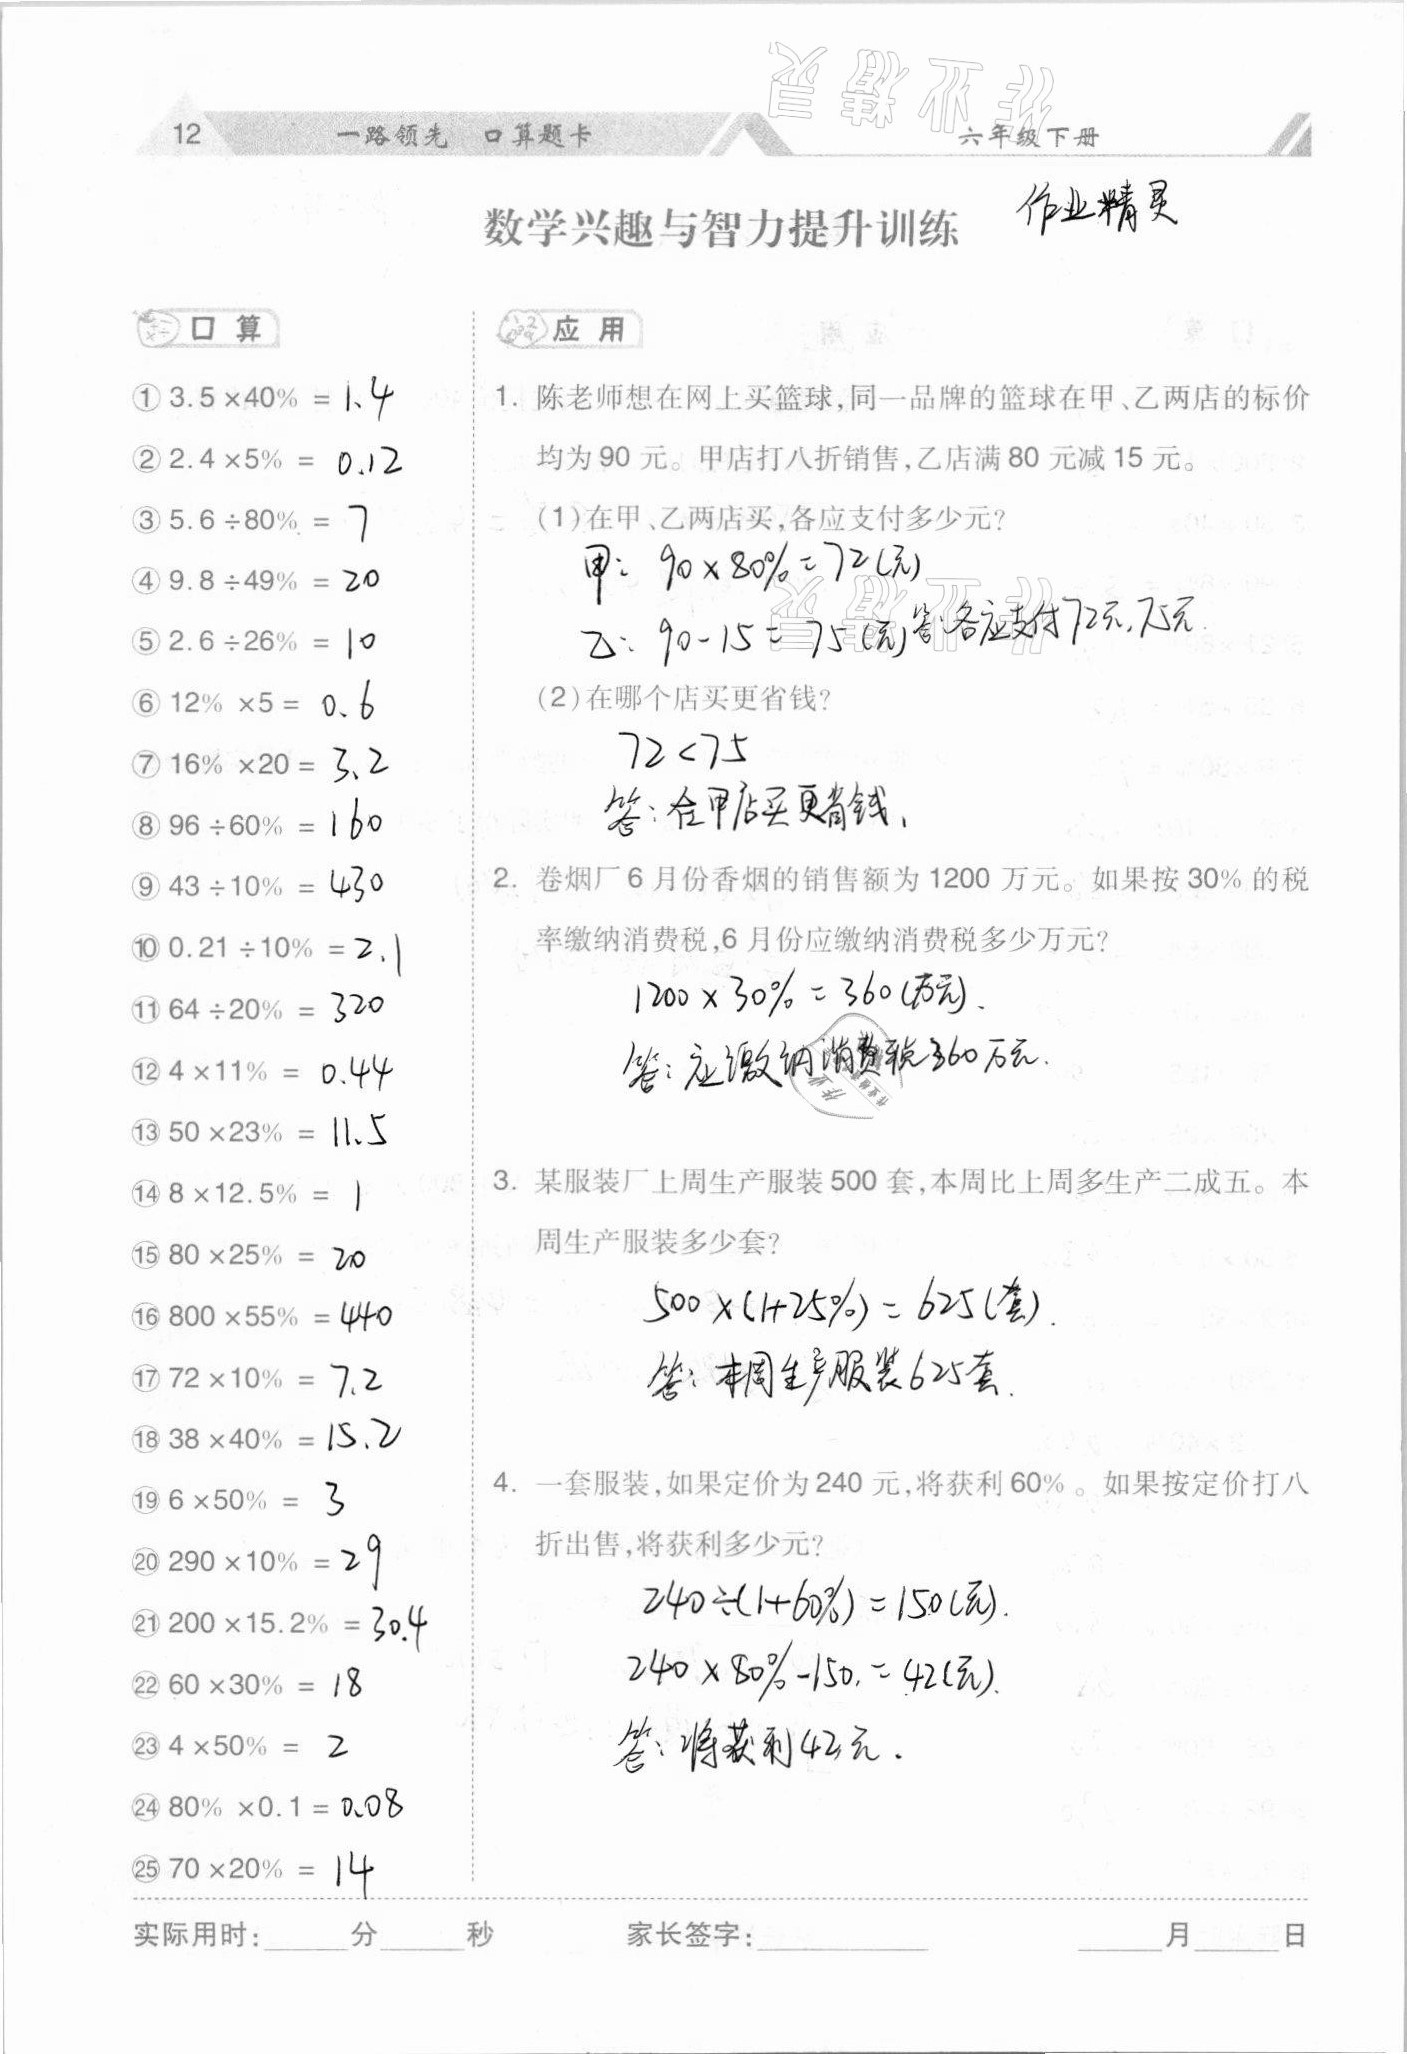 作业精灵
12 一路领先 口算题卡 六年级下册
作业精灵
数学兴趣与智力提升训练
口算
① 3.5×40% = 1.4
② 2.4×5% = 0.12
③ 5.6÷80% = 7
④ 9.8÷49% = 20
⑤ 2.6÷26% = 10
⑥ 12% ×5 = 0.6
⑦ 16% ×20 = 3.2
⑧ 96÷60% = 160
⑨ 43÷10% = 430
⑩ 0.21÷10% = 2.1
⑪ 64÷20% = 320
⑫ 4×11% = 0.44
⑬ 50×23% = 11.5
⑭ 8×12.5% = 1
⑮ 80×25% = 20
⑯ 800×55% = 440
⑰ 72×10% = 7.2
⑱ 38×40% = 15.2
⑲ 6×50% = 3
⑳ 290×10% = 29
㉑ 200×15.2% = 30.4
㉒ 60×30% = 18
㉓ 4×50% = 2
㉔ 80% ×0.1 = 0.08
㉕ 70×20% = 14
应用
1. 陈老师想在网上买篮球,同一品牌的篮球在甲、乙两店的标价
均为90元。甲店打八折销售,乙店满80元减15元。
(1)在甲、乙两店买,各应支付多少元?
甲: 90×80%=72(元)
作业精灵
乙: 90-15=75(元) 答:各应支付72元,75元.
(2)在哪个店买更省钱?
72<75
答:在甲店买更省钱.
2. 卷烟厂6月份香烟的销售额为1200万元。如果按30%的税
率缴纳消费税,6月份应缴纳消费税多少万元?
1200×30%=360(万元).
答:应缴纳消费税360万元.
3. 某服装厂上周生产服装500套,本周比上周多生产二成五。本
周生产服装多少套?
500×(1+25%)=625(套).
答:本周生产服装625套.
4. 一套服装,如果定价为240元,将获利60%。如果按定价打八
折出售,将获利多少元?
240÷(1+60%)=150(元).
240×80%-150=42(元).
答:将获利42元.
实际用时:______分______秒 家长签字:____________ ______月______日